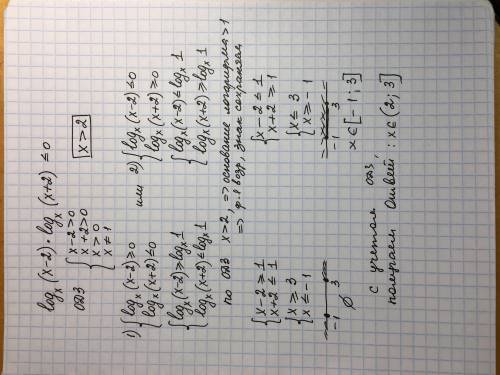 log_x (x-2) · log_x (x+2) ≤ 0
ОДЗ { x-2>0
x+2>0
x>0
x≠1
x>2
1) { log_x (x-2) ≥ 0
log_x (x+2) ≤ 0
или 2) { log_x (x-2) ≤ 0
log_x (x+2) ≥ 0
{ log_x (x-2) ≥ log_x 1
log_x (x+2) ≤ log_x 1
{ log_x (x-2) ≤ log_x 1
log_x (x+2) ≥ log_x 1
по ОДЗ x>2, => основание логарифма >1
=> ф-я возр, знак сохраняем
{ x-2 ≥ 1
x+2 ≤ 1
{ x ≥ 3
x ≤ -1
-1 3
∅
{ x-2 ≤ 1
x+2 ≥ 1
{ x ≤ 3
x ≥ -1
-1 3
x∈[-1; 3]
с учетом ОДЗ,
получаем Ответ: x∈(2; 3]